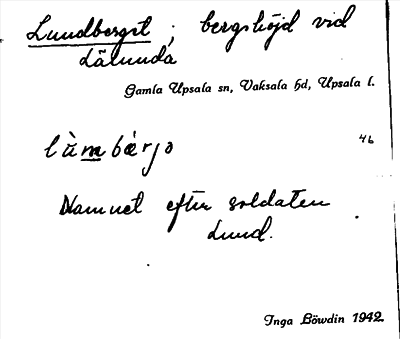 Lundberget ; bergshöjd vid
Lälunda
Gamla Upsala sn, Vaksala hd, Upsala l.
lùmbærjo 46
Namnet efter soldaten
Lund.
Inga Löwdin 1942.